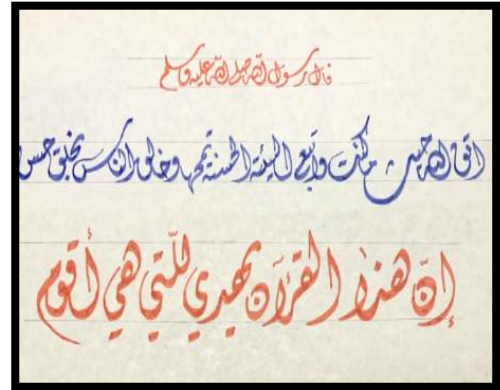 قال رسول الله صلى الله عليه وسلم
اتق الله حيث ما كنت وأتبع السيئة الحسنة تمحها وخالق الناس بخلق حسن
إنّ هذا القرآن يهدي للّتي هي أقوم